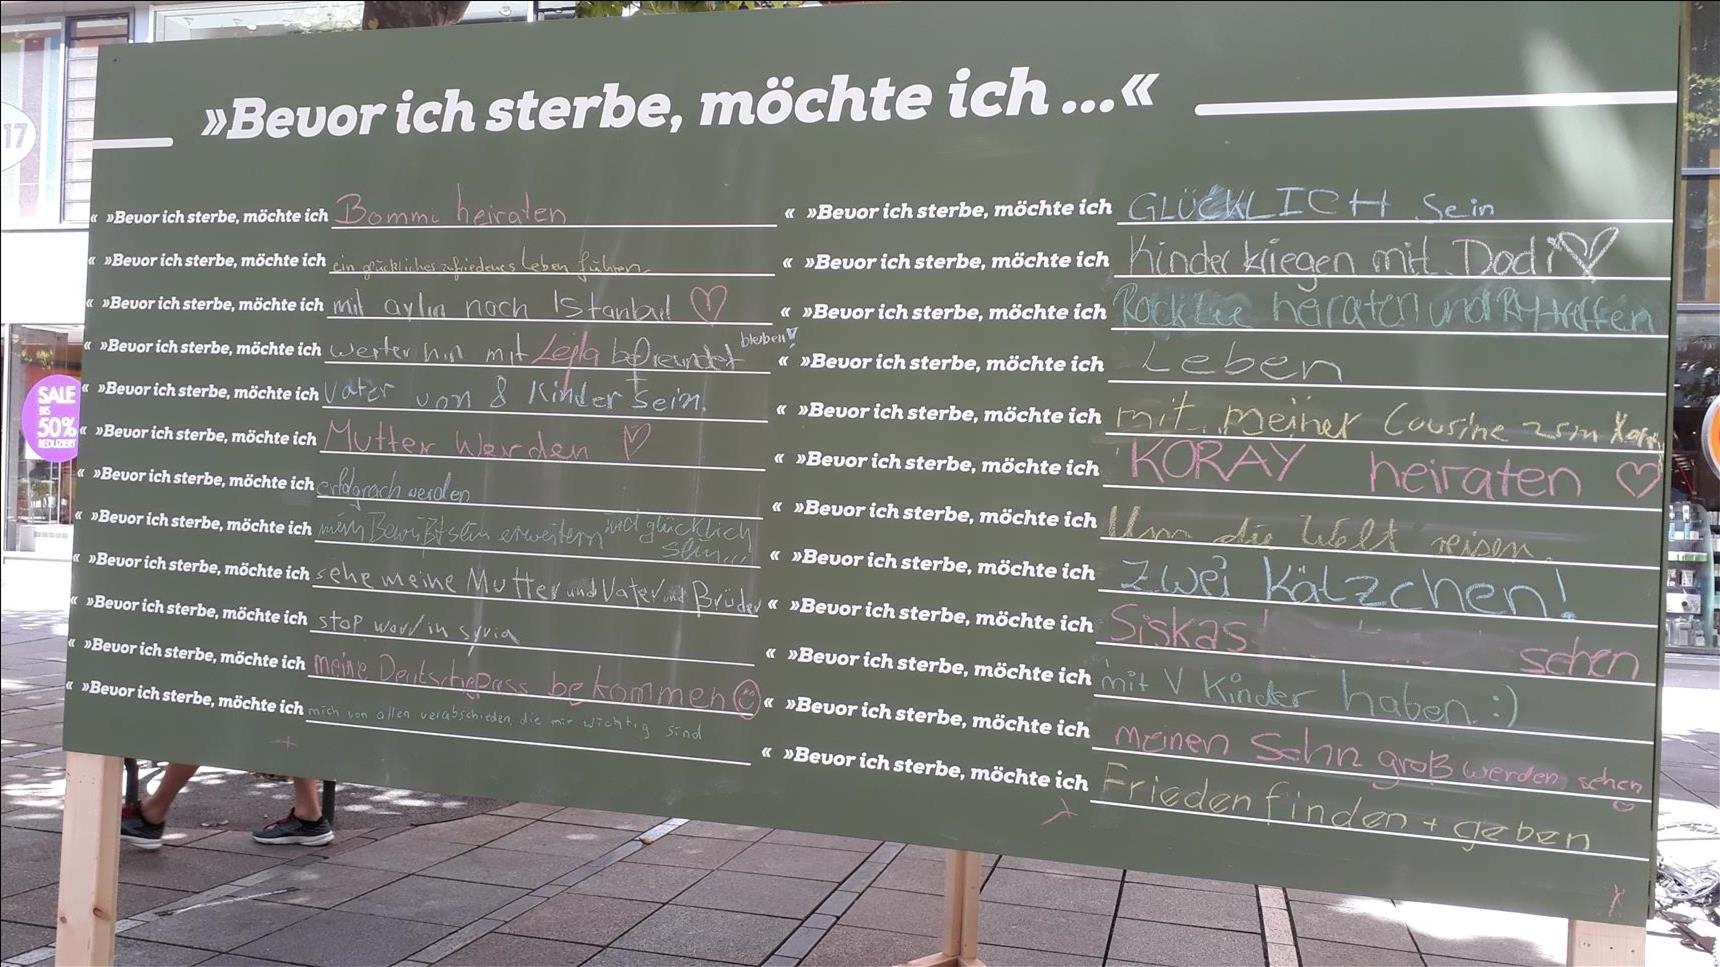 »Bevor ich sterbe, möchte ich ...«
»Bevor ich sterbe, möchte ich Bommi heiraten «
»Bevor ich sterbe, möchte ich ein glückliches zufriedenes Leben führen «
»Bevor ich sterbe, möchte ich mit aylin nach Istanbul ♡ «
»Bevor ich sterbe, möchte ich weiterhin mit Lejla befreundet bleiben! «
»Bevor ich sterbe, möchte ich Vater von 8 Kinder sein. «
»Bevor ich sterbe, möchte ich Mutter werden ♡ «
»Bevor ich sterbe, möchte ich erfolgreich werden «
»Bevor ich sterbe, möchte ich mein Bewußtsein erweitern und glücklich sein... «
»Bevor ich sterbe, möchte ich sehe meine Mutter und Vater und Brüder «
»Bevor ich sterbe, möchte ich stop war in syria «
»Bevor ich sterbe, möchte ich meine Deutschpass bekommen ☺ «
»Bevor ich sterbe, möchte ich mich von allen verabschieden, die mir wichtig sind «
»Bevor ich sterbe, möchte ich GLÜCKLICH sein
»Bevor ich sterbe, möchte ich Kinder kriegen mit Dodi ♡
»Bevor ich sterbe, möchte ich Rock Lee heiraten und treffen
»Bevor ich sterbe, möchte ich Leben
»Bevor ich sterbe, möchte ich mit meiner Cousine zum
»Bevor ich sterbe, möchte ich KORAY heiraten ♡
»Bevor ich sterbe, möchte ich Um die Welt reisen.
»Bevor ich sterbe, möchte ich Zwei Kätzchen!
»Bevor ich sterbe, möchte ich Siskas sehen
»Bevor ich sterbe, möchte ich mit V Kinder haben :)
»Bevor ich sterbe, möchte ich meinen Sohn groß werden sehen ♡
»Bevor ich sterbe, möchte ich Frieden finden + geben
17
SALE
BIS
50%
REDUZIERT